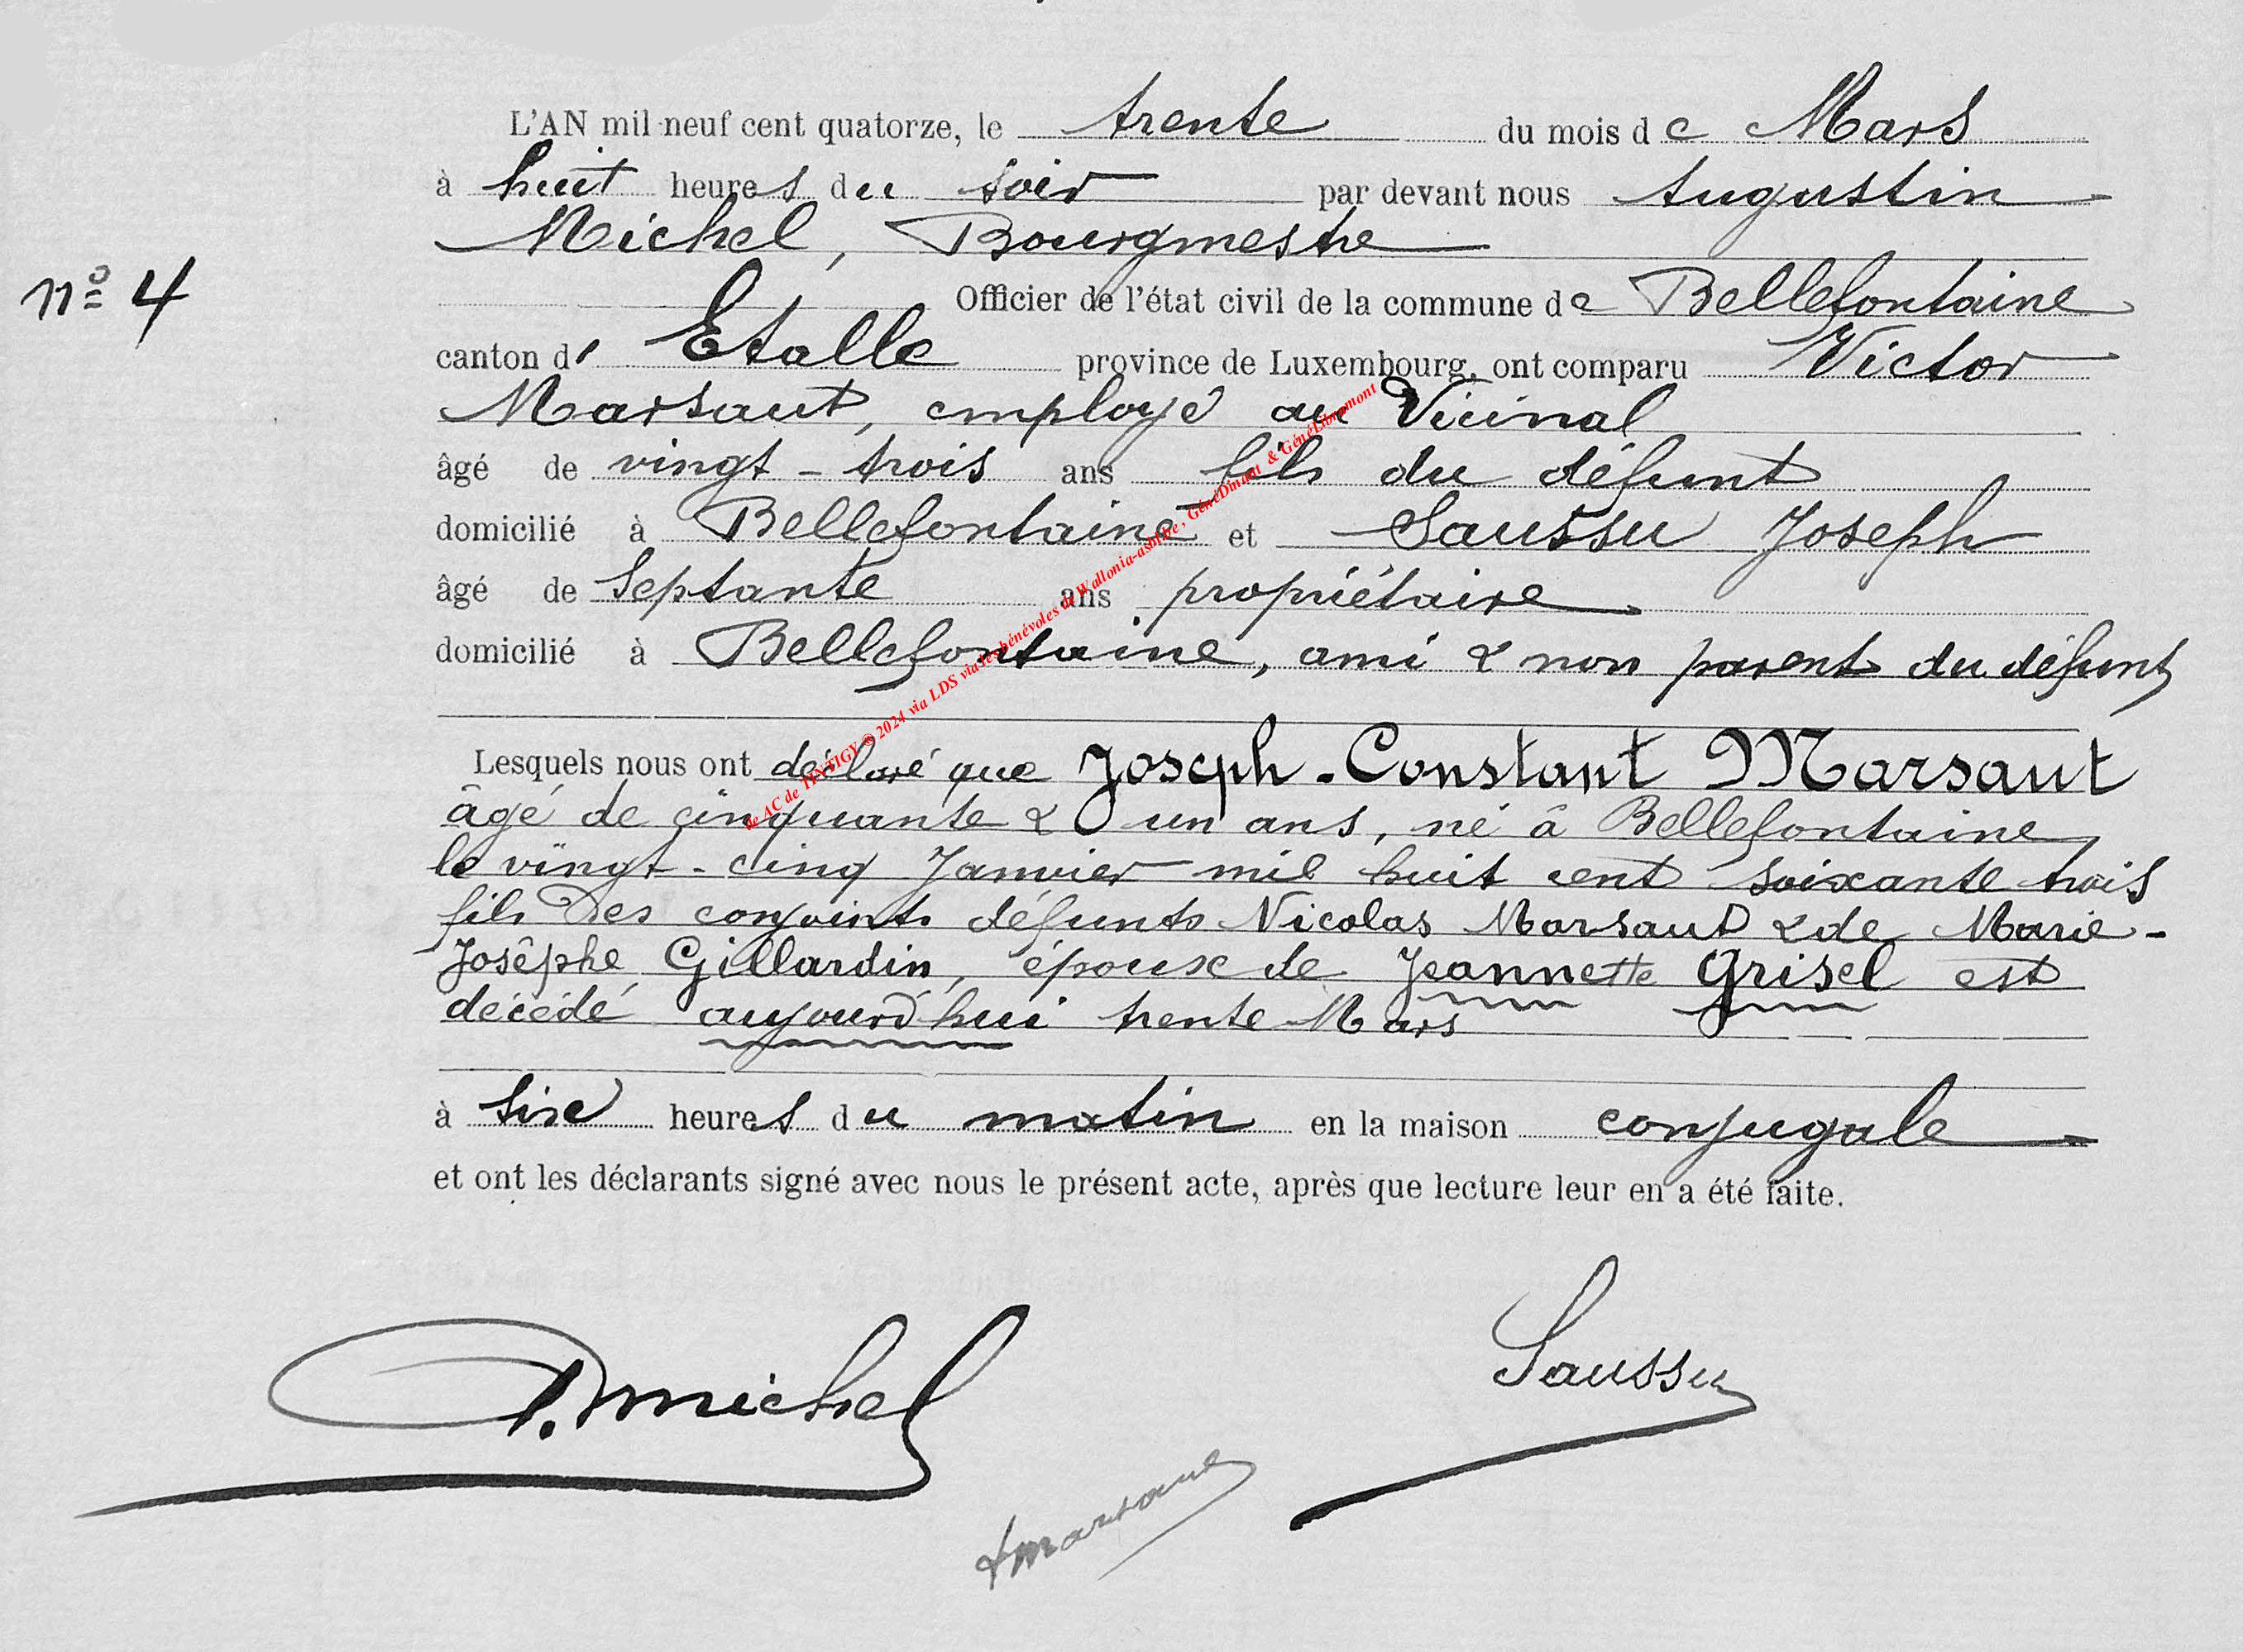 L'AN mil neuf cent quatorze, le trente du mois de Mars
à huit heures du soir par devant nous Augustin
Michel, Bourgmestre
n° 4
Officier de l'état civil de la commune de Bellefontaine
canton d' Etalle province de Luxembourg, ont comparu Victor
Marsaut, employé au Vicinal
âgé de vingt-trois ans fils du défunt
domicilié à Bellefontaine et Saussu Joseph
âgé de septante ans propriétaire
domicilié à Bellefontaine, ami & non parent du défunt
Lesquels nous ont déclaré que Joseph-Constant Marsaut
âgé de cinquante & un ans, né à Bellefontaine
le vingt-cinq Janvier mil huit cent soixante trois
fils des conjoints défunts Nicolas Marsaut & de Marie-
Josêphe Gillardin, époux de Jeannette Grisel est
décédé aujourd'hui trente Mars
à six heures du matin en la maison conjugale
et ont les déclarants signé avec nous le présent acte, après que lecture leur en a été faite.
Saussu
A. Michel
Marsaut
de AC de TINTIGY © 2024 via LDS via les bénévoles de Wallonia-asbl.be, GénéDinant & GénéLibramont